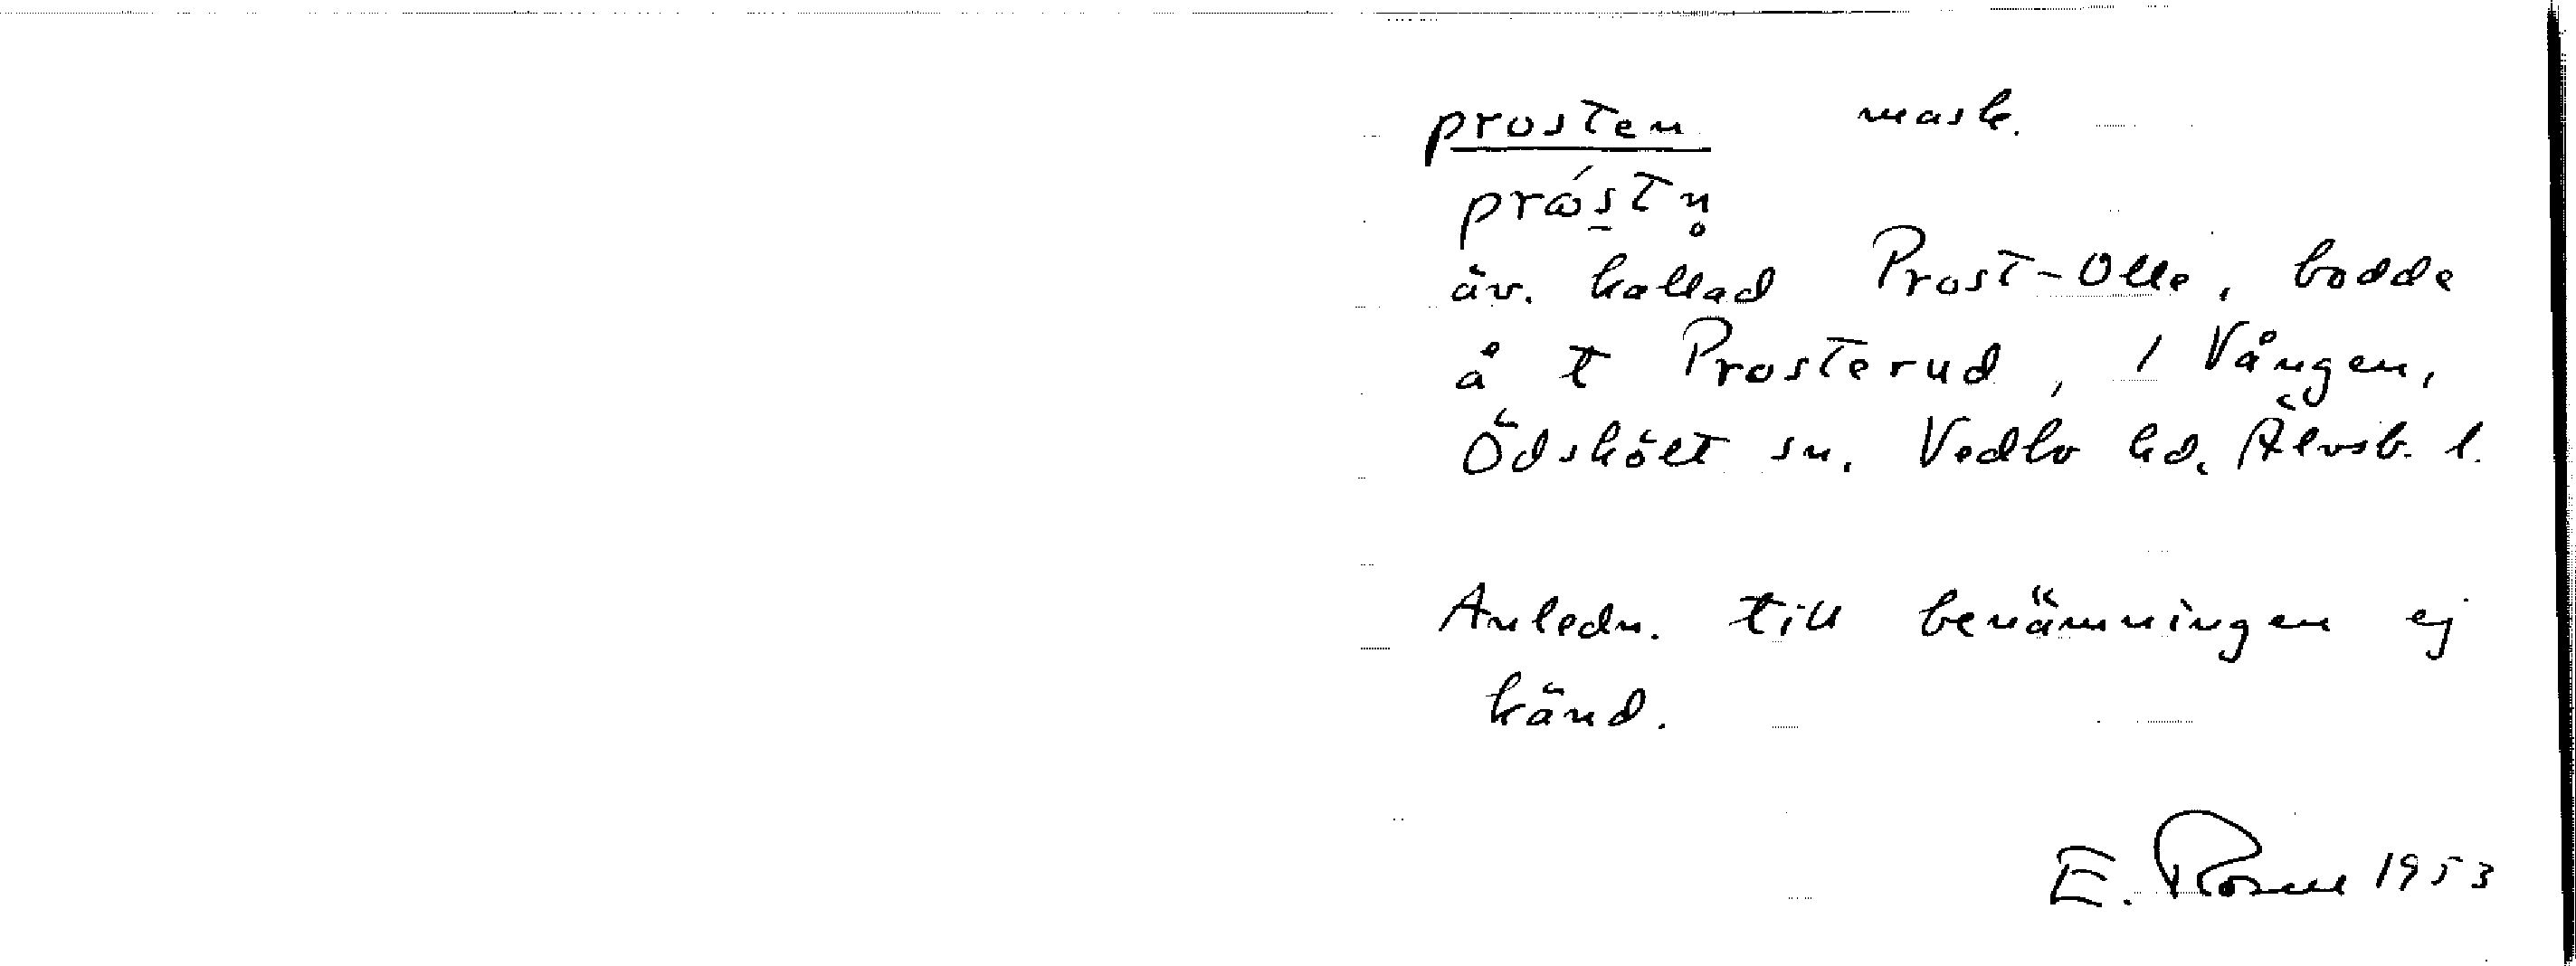 prosten mask.
prώs̠tn̥
äv. kallad Prost-Olle, bodde
å t Prosterud, 1 Vången,
Ödskölt sn. Vedbo hd. Älvsb. l.
Anledn. till benämningen ej
känd.
E. 1953